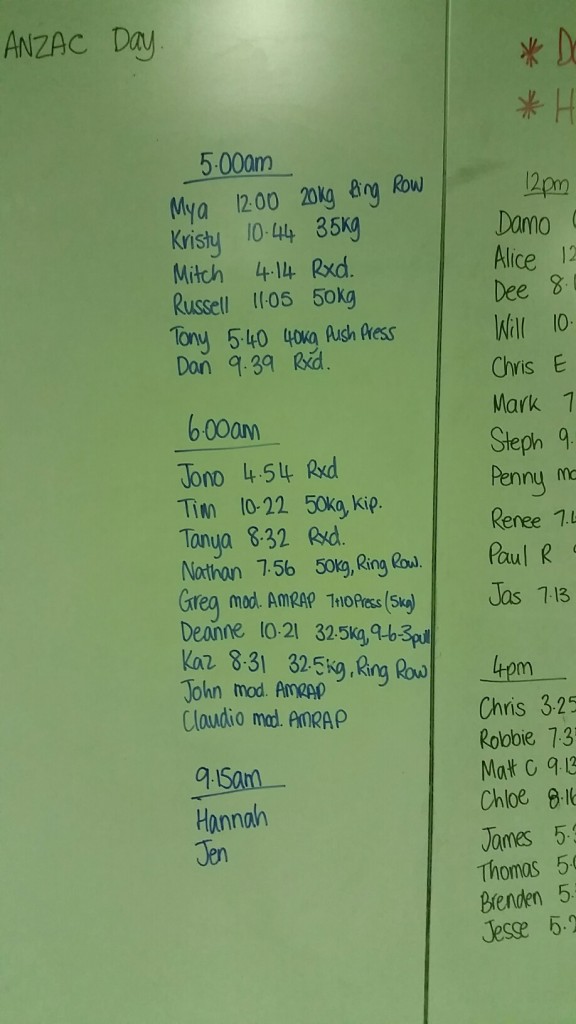 ANZAC Day.
5.00am
Mya 12.00 20kg Ring Row
Kristy 10.44 35kg
Mitch 4.14 Rxd.
Russell 11.05 50kg
Tony 5.40 40kg Push Press
Dan 9.39 Rxd.
6.00am
Jono 4.54 Rxd
Tim 10.22 50kg, kip.
Tanya 8.32 Rxd.
Nathan 7.56 50kg, Ring Row.
Greg mod. AMRAP 7+10 Press (5kg)
Deanne 10.21 32.5kg, 9-6-3 pull
Kaz 8.31 32.5kg, Ring Row
John mod. AMRAP
Claudio mod. AMRAP
9.15am
Hannah
Jen
* Do
* H
12pm
Damo
Alice 12
Dee 8.
Will 10.
Chris E
Mark 7
Steph 9.
Penny mo
Renee 7.4
Paul R
Jas 7.13
4pm
Chris 3.25
Robbie 7.3
Matt C 9.13
Chloe 8.16
James 5.
Thomas 5.0
Brenden 5.
Jesse 5.2